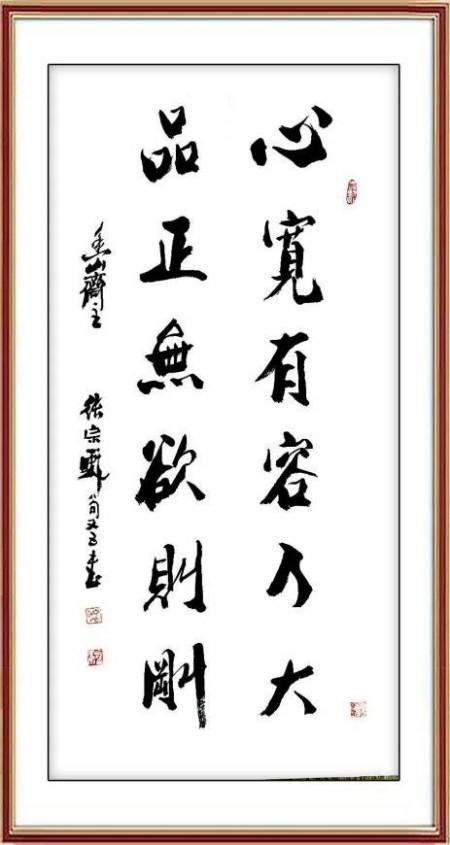 心寬有容乃大
品正無欲則剛
山齋主
張宗